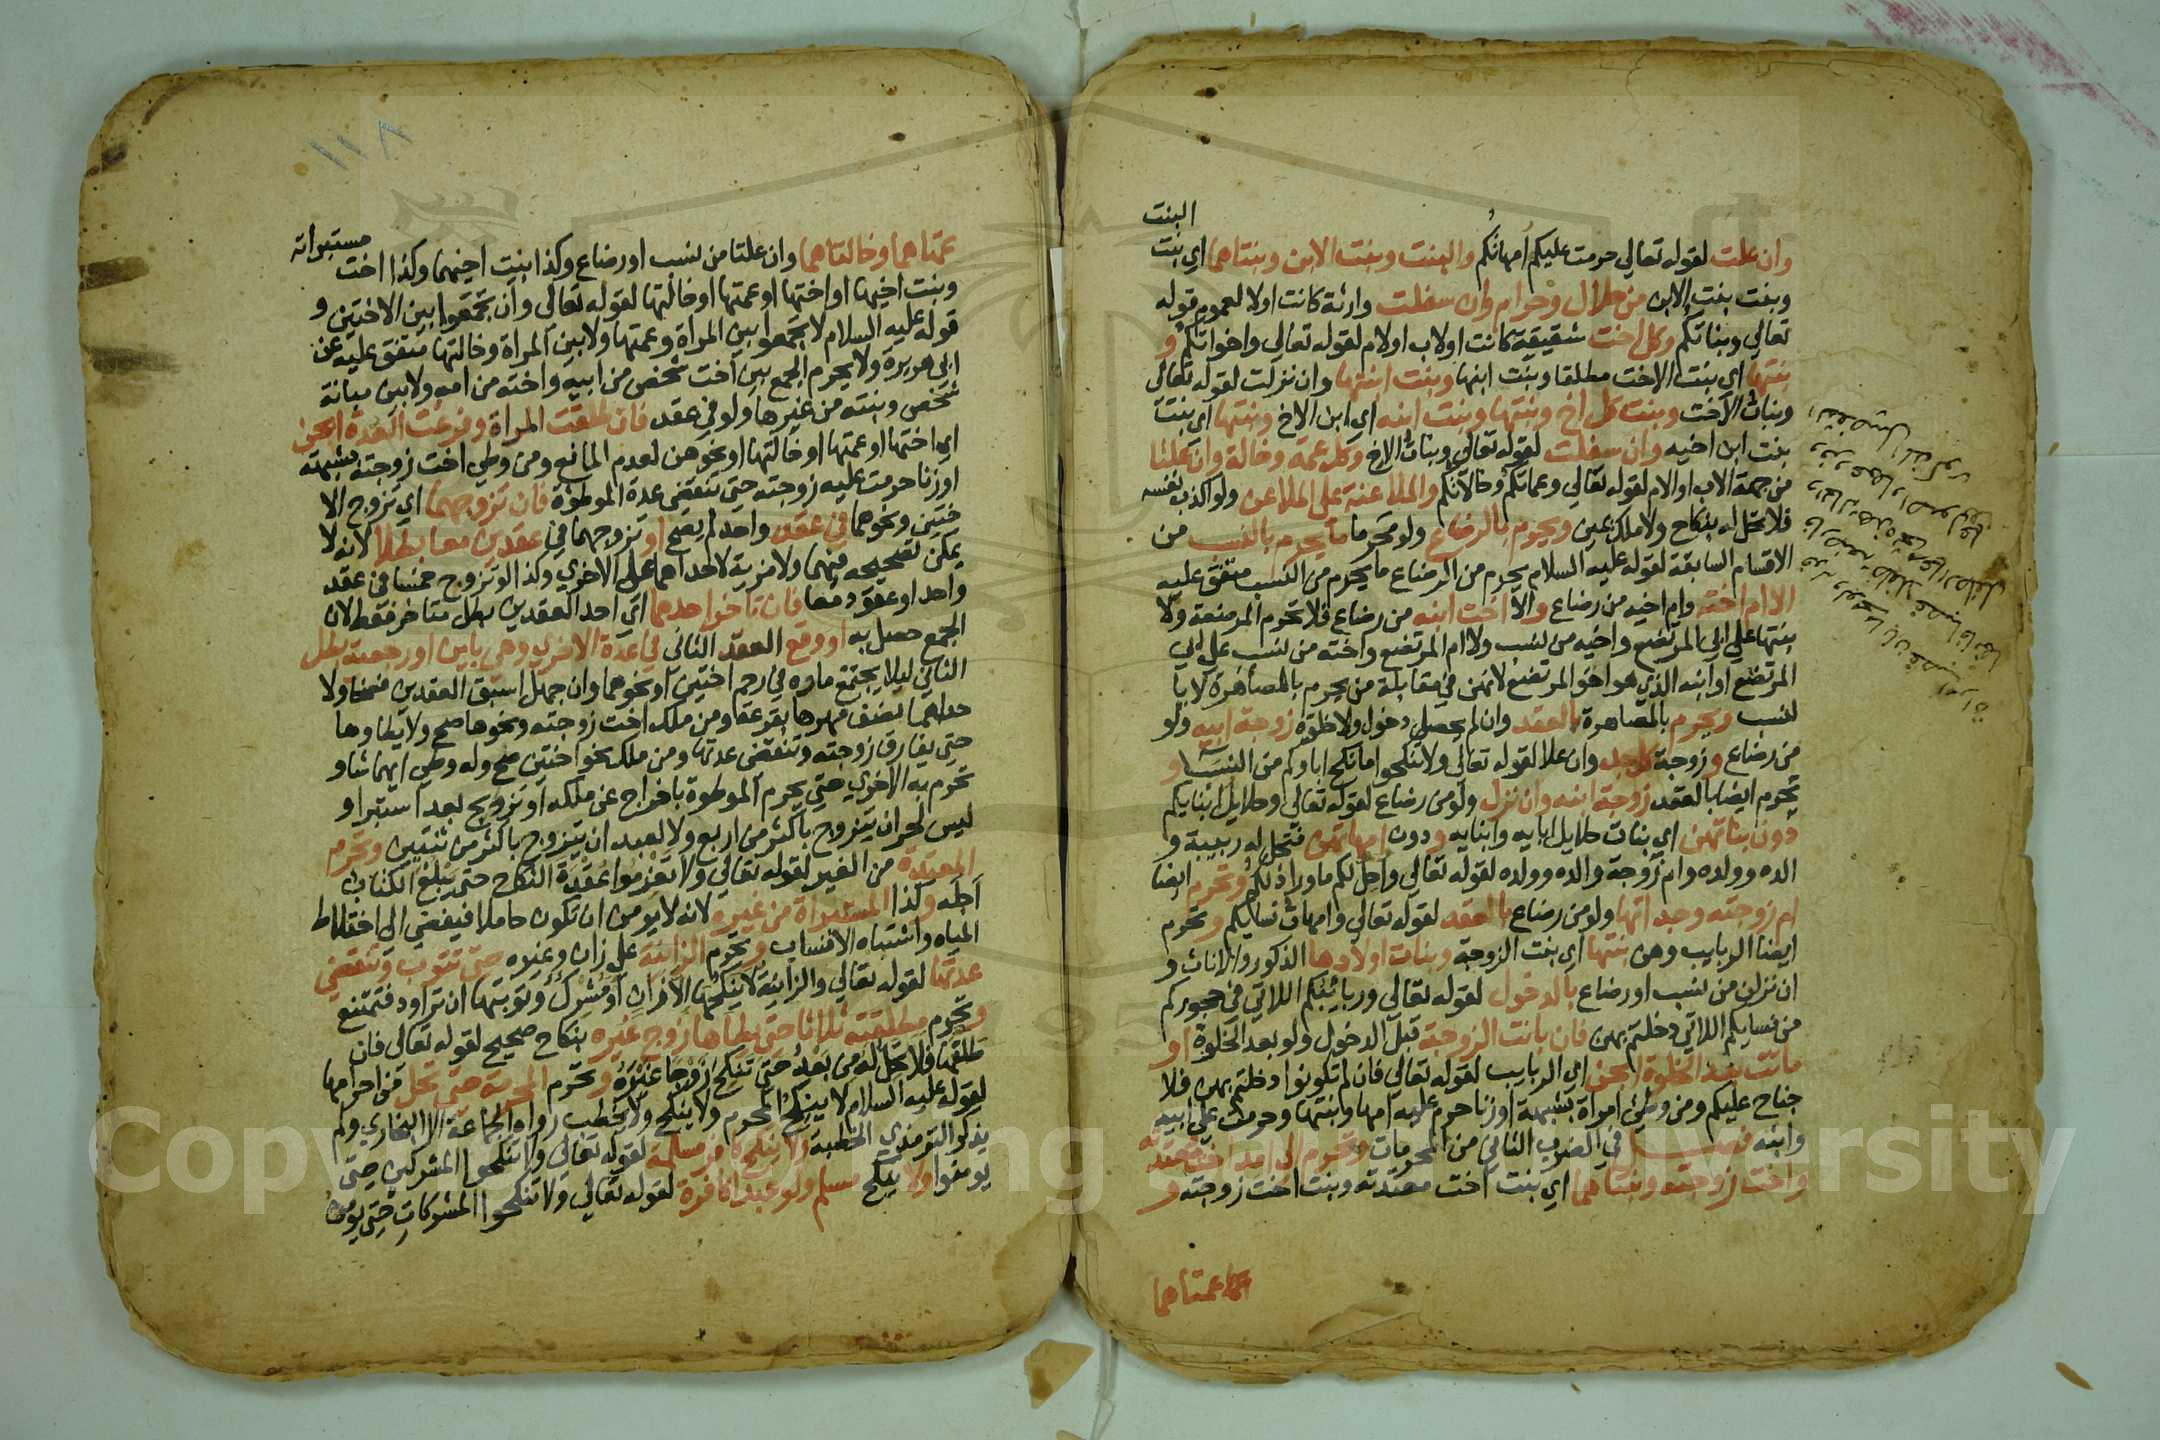 البنت
وان علت لقوله تعالي حرمت عليكم امهاتكم والبنت وبنت الابن وبنتاهما اي بنت
وبنت بنت الابن من حلال وحرام وان سفلت وارثة كانت اولا لعموم قوله
تعالي وبناتكم وكل اخت شقيقة كانت اولاب اولام لقوله تعالي واخواتكم و
بنتها اي بنت الاخت مطلقا وبنت ابنها وبنت ابنتها وان نزلت لقوله تعالي
وبنات الاخت وبنت كل اخ وبنتها وبنت ابنه اي ابن الاخ وبنتها اي بنت
بنت ابن اخيه وان سفلت لقوله تعالي وبنات الاخ وكل عمة وخالة وان علتا
من جهة الاب اوالام لقوله تعالي وعماتكم وخالاتكم والملاعنة علي الملاعن ولو اكذب نفسه
فلا تحل له بنكاح ولا ملك يمين ويحرم بالرضاع ولو محرما ما يحرم بالنسب من
الاقسام السابقة لقوله عليه السلام يحرم من الرضاع ما يحرم من النسب متفق عليه
الا ام اخته وام اخيه من رضاع والا اخت ابنه من رضاع فلا تحرم المرضعة ولا
بنتها علي ابي المرتضع واخيه من نسب ولا ام المرتضع واخته من نسب علي ابي
المرتضع او ابنه الذي هو اخو المرتضع لانهن في مقابلة من يحرم بالمصاهرة لا با
لنسب ويحرم بالمصاهرة بالعقد وان لم يحصل دخول ولا خلوة زوجة ابيه ولو
من رضاع و زوجة كل جد وان علا لقوله تعالي ولا تنكحوا ما نكح اباوكم من النسا و
تحرم ايضا بالعقد زوجة ابنه وان نزل ولو من رضاع لقوله تعالي وحلايل ابنايكم
دون بناتهن اي بنات حلايل ابايه وابنايه و دون امهاتهن فتحل له ربيبة و
الده وولده وام زوجة والده وولده لقوله تعالي واحل لكم ما ورا ذلكم وتحرم ايضا
ام زوجته وجداتها ولو من رضاع بالعقد لقوله تعالي وامهات نسايكم و تحرم
ايضا الربايب وهن بنتها اي بنت الزوجة وبنات اولادها الذكور والاناث و
ان نزلن من نسب او رضاع بالدخول لقوله تعالي وربائبكم اللاتي في حجوركم
من نسايكم اللاتي دخلتم بهن فان بانت الزوجة قبل الدخول ولو بعد الخلوة او
ماتت بعد الخلوة ابحن اي الربايب لقوله تعالي فان لم تكونوا دخلتم بهن فلا
جناح عليكم ومن وطئ امراة بشبهة او زنا حرم عليه امها وابنتها وحرمت علي ابيه
وابنه فصل في الضرب الثاني من المحرمات وتحرم الي امد اخت معتدته
واخت زوجته وبنتاهما اي بنت اخت معتدته وبنت اخت زوجته و
عمتاهما
١١٨
عمتاهما وخالتاهما وان علتا من نسب او رضاع وكذا بنت اخيهما وكذا اخت مستبراته
وبنت اخيها او اختها او عمتها او خالتها لقوله تعالي وان تجمعوا بين الاختين و
قوله عليه السلام لا تجمعوا بين المراة وعمتها ولا بين المراة وخالتها متفق عليه عن
ابي هريرة ولا يحرم الجمع بين اخت شخص من ابيه واخته من امه ولا بين مبانة
شخص وبنته من غيرها ولو في عقد فان طلقت المراة وفرغت العدة ابحن
اي اختها او عمتها او خالتها او نحوهن لعدم المانع ومن وطي اخت زوجته بشبهة
او زنا حرمت عليه زوجته حتي تنقضي عدة الموطوة فان تزوجهما اي تزوج الا
ختين ونحوهما في عقد واحد لم يصح او تزوجهما في عقدين معا بطلا لانه لا
يمكن تصحيحه فيهما ولا مزية لاحداهما علي الاخري وكذا لو تزوج خمسا في عقد
واحد او عقود معا فان تاخر احدهما اي احد العقدين بطل متاخر فقط لان
الجمع حصل به او وقع العقد الثاني في عدة الاخري وهي باين او رجعية بطل
الثاني ليلا يجتمع ماوه في رحم اختين او نحوهما وان جهل اسبق العقدين فسخا ولا
حداهما نصف مهرها بقرعة ومن ملك اخت زوجته ونحوها صح ولا يطاوها
حتي يفارق زوجته وتنقضي عدتها ومن ملك نحو اختين صح وله وطي ايهما شا و
تحرم به الاخري حتي يحرم الموطوة باخراج عن ملكه او تزويج بعد استبرا و
ليس لحر ان يتزوج باكثر من اربع ولا لعبد ان يتزوج باكثر من ثنتين وتحرم
المعتدة من الغير لقوله تعالي ولا تعزموا عقدة النكاح حتي يبلغ الكتاب
اجله وكذا المستبراة من غيره لانه لا يومن ان تكون حاملا فيفضي الي اختلاط
المياه واشتباه الانساب وتحرم الزانية علي زان وغيره حتي تتوب وتنقضي
عدتها لقوله تعالي والزانية لا ينكحها الا زان او مشرك وتوبتها ان تراود فتمتنع
وتحرم مطلقته ثلاثا حتي يطاها زوج غيره بنكاح صحيح لقوله تعالي فان
طلقها فلا تحل له من بعد حتي تنكح زوجا غيره وتحرم المحرمة حتي تحل من احرامها
لقوله عليه السلام لا ينكح المحرم ولا ينكح ولا يخطب رواه الجماعة الا البخاري ولم
يذكر الترمذي الخطبة ولا ينكح كافر مسلمة لقوله تعالي ولا تنكحوا المشركين حتي
يومنوا ولا ينكح مسلم ولو عبدا كافرة لقوله تعالي ولا تنكحوا المشركات حتي يومن